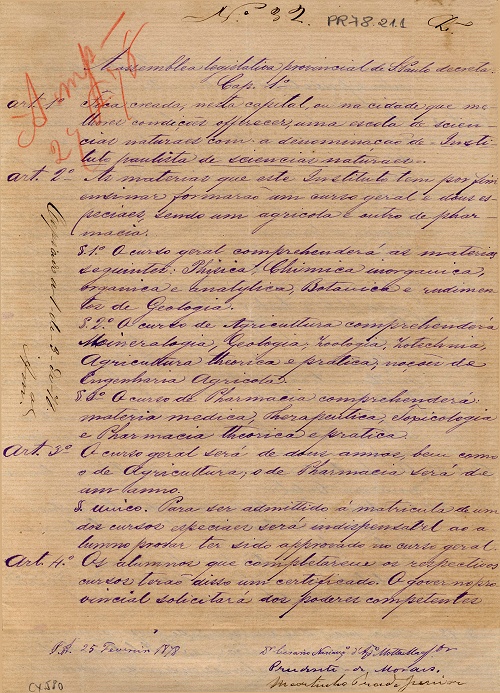 Nº 32 PR78.211
A assemblea legislativa provincial de S. Paulo decreta.
Cap. 1º
Art. 1º Fica creada, nesta capital, ou na cidade que me-
lhores condições offerecer, uma escola de scien-
cias naturaes com a denominação de - Insti-
tuto paulista de sciencias naturaes.
Art. 2º As materias que este Instituto tem por fim
ensinar formarão um curso geral e dous es-
peciaes, sendo um agricola e outro de phar-
macia.
§.1º O curso geral comprehenderá as materias
seguintes: Phisica, Chimica inorganica,
organica e analytica, Botanica e rudimen-
tos de Geologia.
§.2º O curso de Agricultura comprehenderá
Mineralogia, Geologia, Zoologia, Zotechnia,
Agricultura theorica e pratica, noções de
Engenharia Agricola.
§.3º O curso de Pharmacia comprehenderá:
materia medica, therapeutica, Toxicologia
e Pharmacia theorica e pratica.
Art. 3º O curso geral será de dous annos, bem como
o de Agricultura; o de Pharmacia será de
um anno.
§. unico. Para ser admittido á matricula de um
dos cursos especiaes será indispensavel ao a-
lumno provar ter sido approvado no curso geral.
Art. 4º Os alumnos que completarem os respectivos
cursos terão disso um certificado. O governo pro-
vincial solicitará dos poderes competentes
25 Fevereiro 1878
Prudente de Moraes
Martinho Prado Junior
CY580